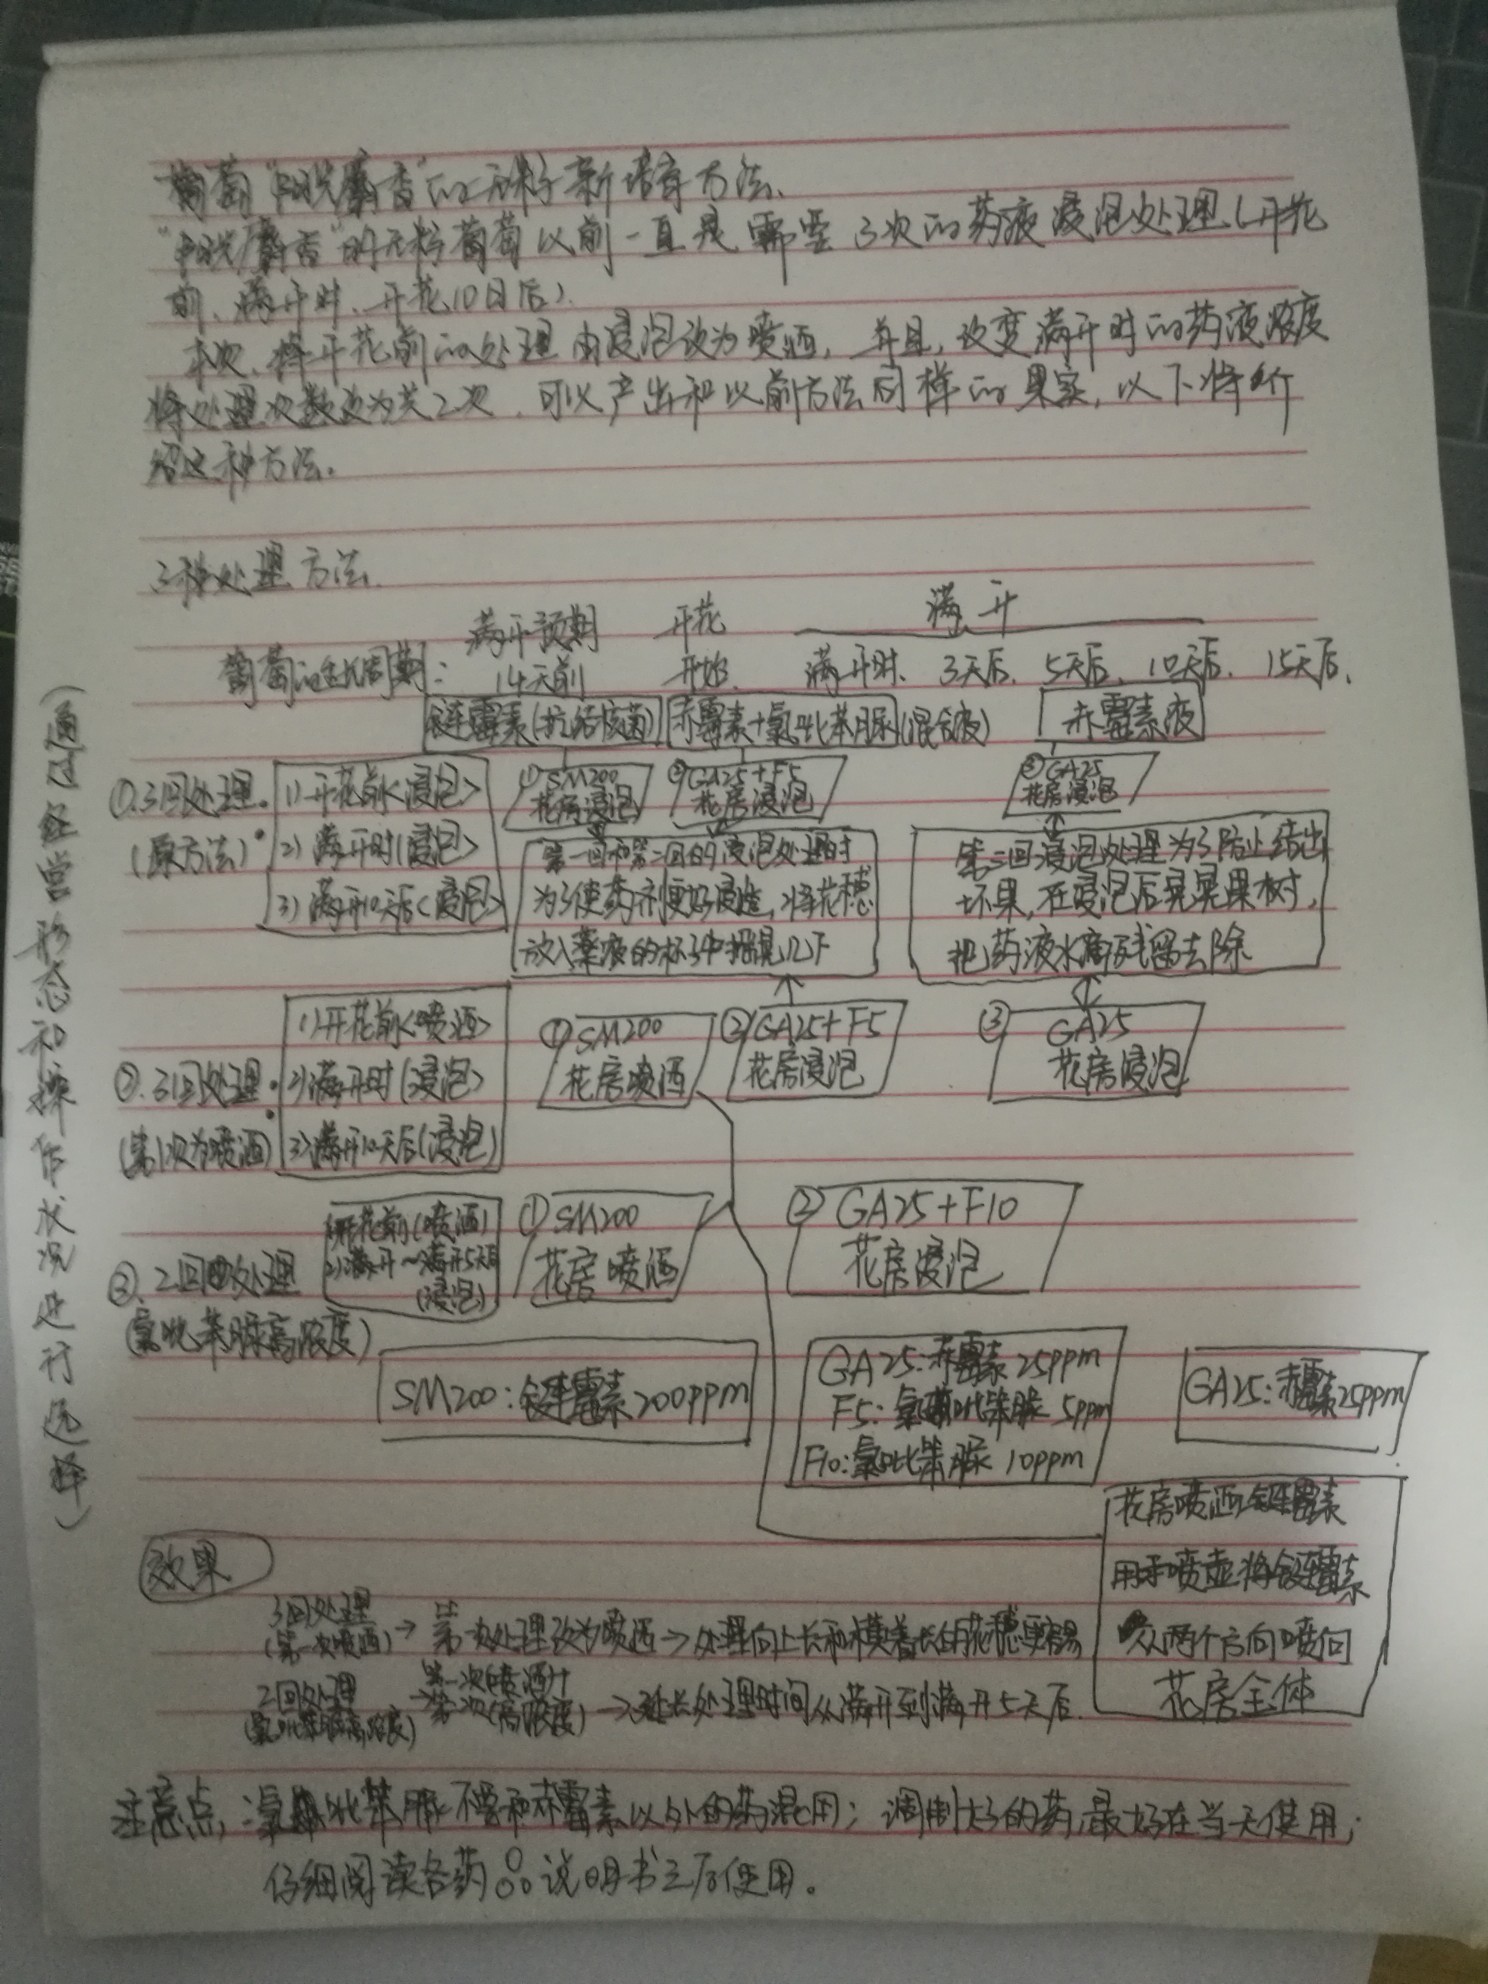 葡萄“阳光麝香”的无籽新培育方法.
“阳光麝香”的无籽葡萄以前一直是需要3次的药液浸泡处理(开花
前、满开时、开花10日后).
本次，将开花前的处理由浸泡改为喷洒，并且，改变满开时的药液浓度
将处理次数改为共2次，可以产出和以前方法同样的果实，以下将介
绍这种方法。
三种处理方法.
满开预期 开花 满开
葡萄的生长周期： 14天前 开始 满开时、3天后、5天后、10天后、15天后、
链霉素(抗结核菌) 赤霉素+氯吡苯脲(混合液) 赤霉素液
(通过经营形态和操作状况进行选择)
①.3回处理.
(原方法)
1)开花前<浸泡>
2)满开时(浸泡>
3)满开10天后<浸泡>
①SM200
花房浸泡
②GA25+F5
花房浸泡
③GA25
花房浸泡
第一回和第二回的浸泡处理时
为了使药剂更好浸渣，将花穗
放入药液的杯子中摇晃几下
第三回浸泡处理为了防止结出
坏果，在浸泡后晃晃果树，
把药液水滴残留去除
②.3回处理
(第1次为喷洒)
1)开花前<喷洒>
2)满开时(浸泡>
3)满开10天后(浸泡)
①SM200
花房喷洒
②GA25+F5
花房浸泡
③GA25
花房浸泡
③.2回处理
(氯吡苯脲高浓度)
1)开花前(喷洒)
2)满开～满开5天后
(浸泡)
①SM200
花房喷洒
②GA25+F10
花房浸泡
SM200：链霉素200ppm
GA25：赤霉素25ppm
F5：氯吡苯脲 5ppm
F10：氯吡苯脲 10ppm
GA25：赤霉素25ppm
花房喷洒链霉素
用手喷壶将链霉素
从两个方向喷向
花房全体
效果
3回处理
(第一次喷洒)→第一次处理改为喷洒→处理向上长和横着长的花穗更容易
2回处理
(氯吡苯脲高浓度)→第一次(喷洒)+第二次(高浓度)→延长处理时间从满开到满开5天后.
注意点：氯吡苯脲不要和赤霉素以外的药混用；调制好的药，最好在当天使用；
仔细阅读各药品说明书之后使用。